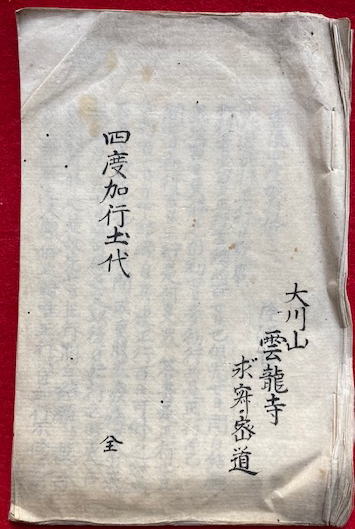 大川山
雲龍寺
求寂密道
四度加行圡代
全